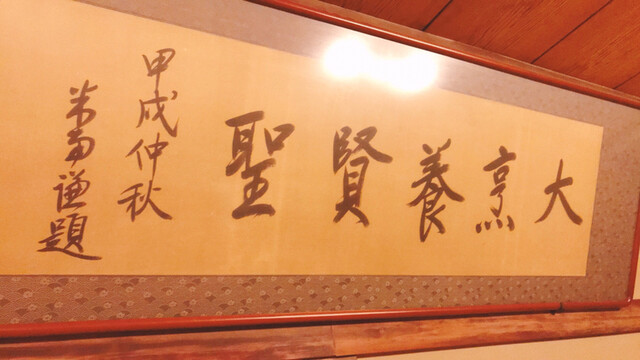 大烹養賢聖
甲戌仲秋
謙題